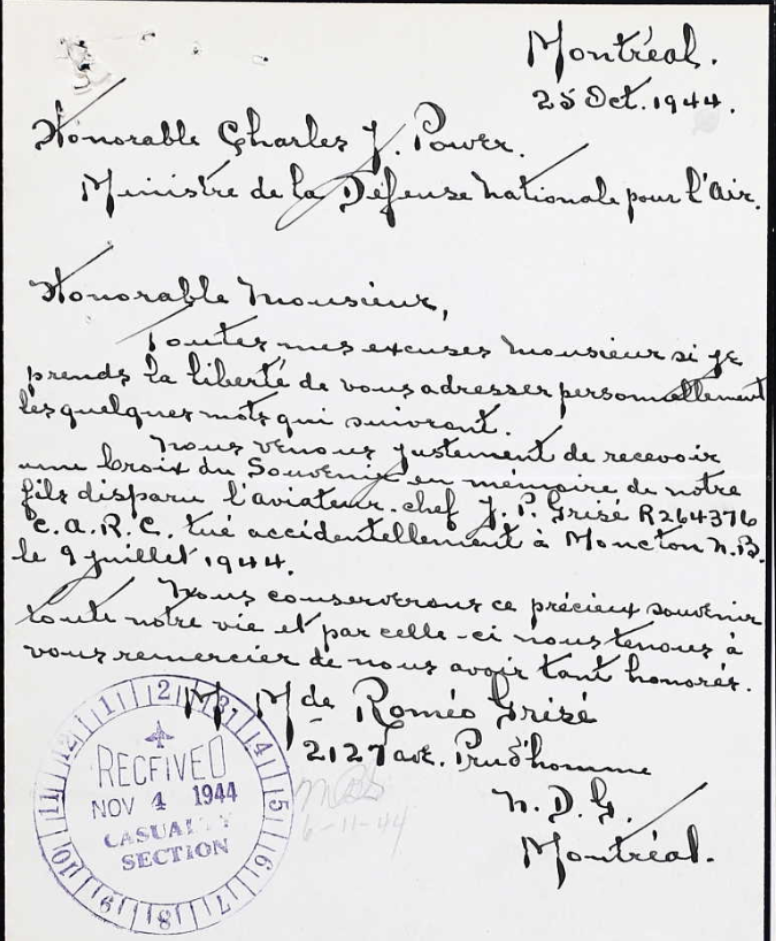 Montréal.
25 Oct. 1944.
Honorable Charles J. Power.
Ministre de la Défense Nationale pour l'Air.
Honorable Monsieur,
Toutes mes excuses Monsieur si je
prends la liberté de vous adresser personnellement
les quelques mots qui suivront.
Nous venons justement de recevoir
une Croix du Souvenir en mémoire de notre
fils disparu l'aviateur-chef J. P. Grisé R264376
C.A.R.C. tué accidentellement à Moncton N.B.
le 9 juillet 1944.
Nous conserverons ce précieux souvenir
toute notre vie et par celle-ci nous tenons à
vous remercier de nous avoir tant honorés.
M. Mde Roméo Grisé
2127 ave. Prud'homme
N.D.G.
Montréal.
RECEIVED
NOV 4 1944
CASUALTY
SECTION
1 2 3 4 5 6 7 8 9 10 11 12
6-11-44